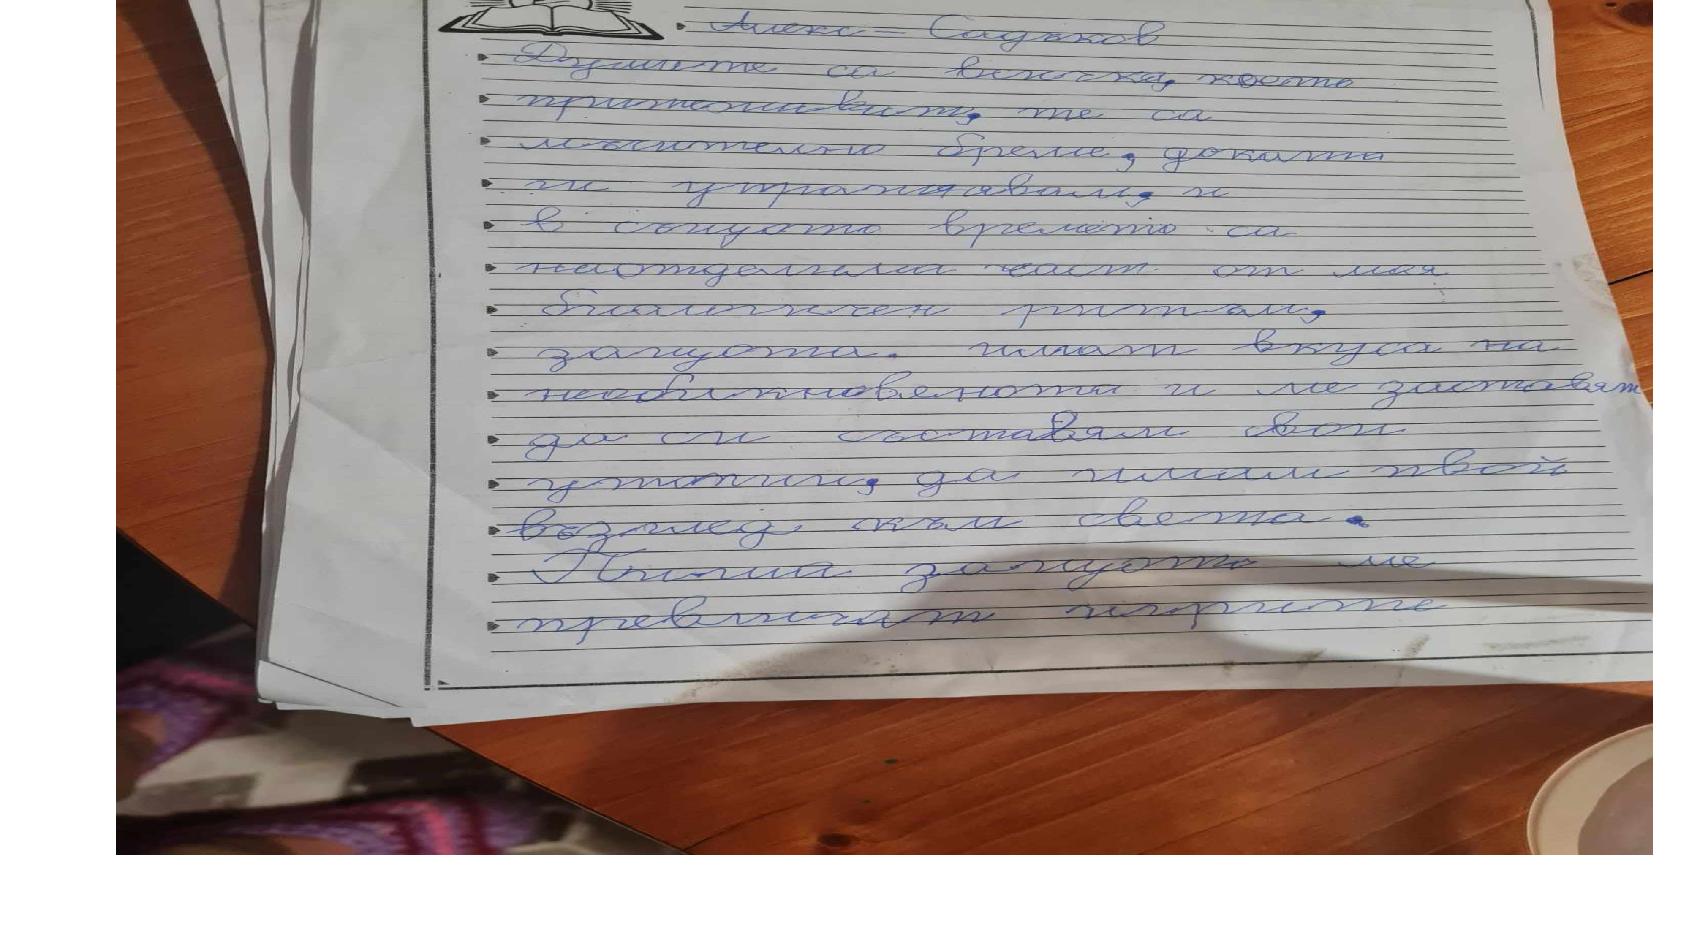 Алекс – Садъков
Думите са всичко, което
притежавам, те са
мъчително бреме, докато
ги упражнявам, и
в същото времето са
неотделима част от моя
биологичен ритъм,
защото. имат вкуса на
необикновеното и ме заставят
да си съставям свои
утопии, да имам твой
възглед към света.
Пиша защото ме
превличат игрите